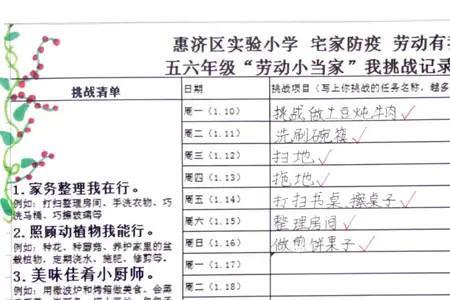 惠济区实验小学 宅家防疫 劳动有
五六年级“劳动小当家”我挑战记录
挑战清单 日期 挑战项目（写上你挑战的任务名称，越多
周一（1.10） 挑战做土豆炖牛肉
周二（1.11） 洗刷碗筷
周三（1.12） 扫地
周四（1.13） 拖地
周五（1.14） 打扫书桌、擦桌子
周六（1.15） 整理房间
周日（1.16） 做煎饼果子
周一（1.17）
周二（1.18）
1. 家务整理我在行。
例如：打扫整理房间、手洗衣物、巧
洗马桶、巧擦玻璃等
2. 照顾动植物我能行。
例如：种花、种蘑菇、养护家里的盆
栽植物，定期浇水、施肥、修剪等。
3. 美味佳肴小厨师。
例如：用微波炉和烤箱做美食、会蒸